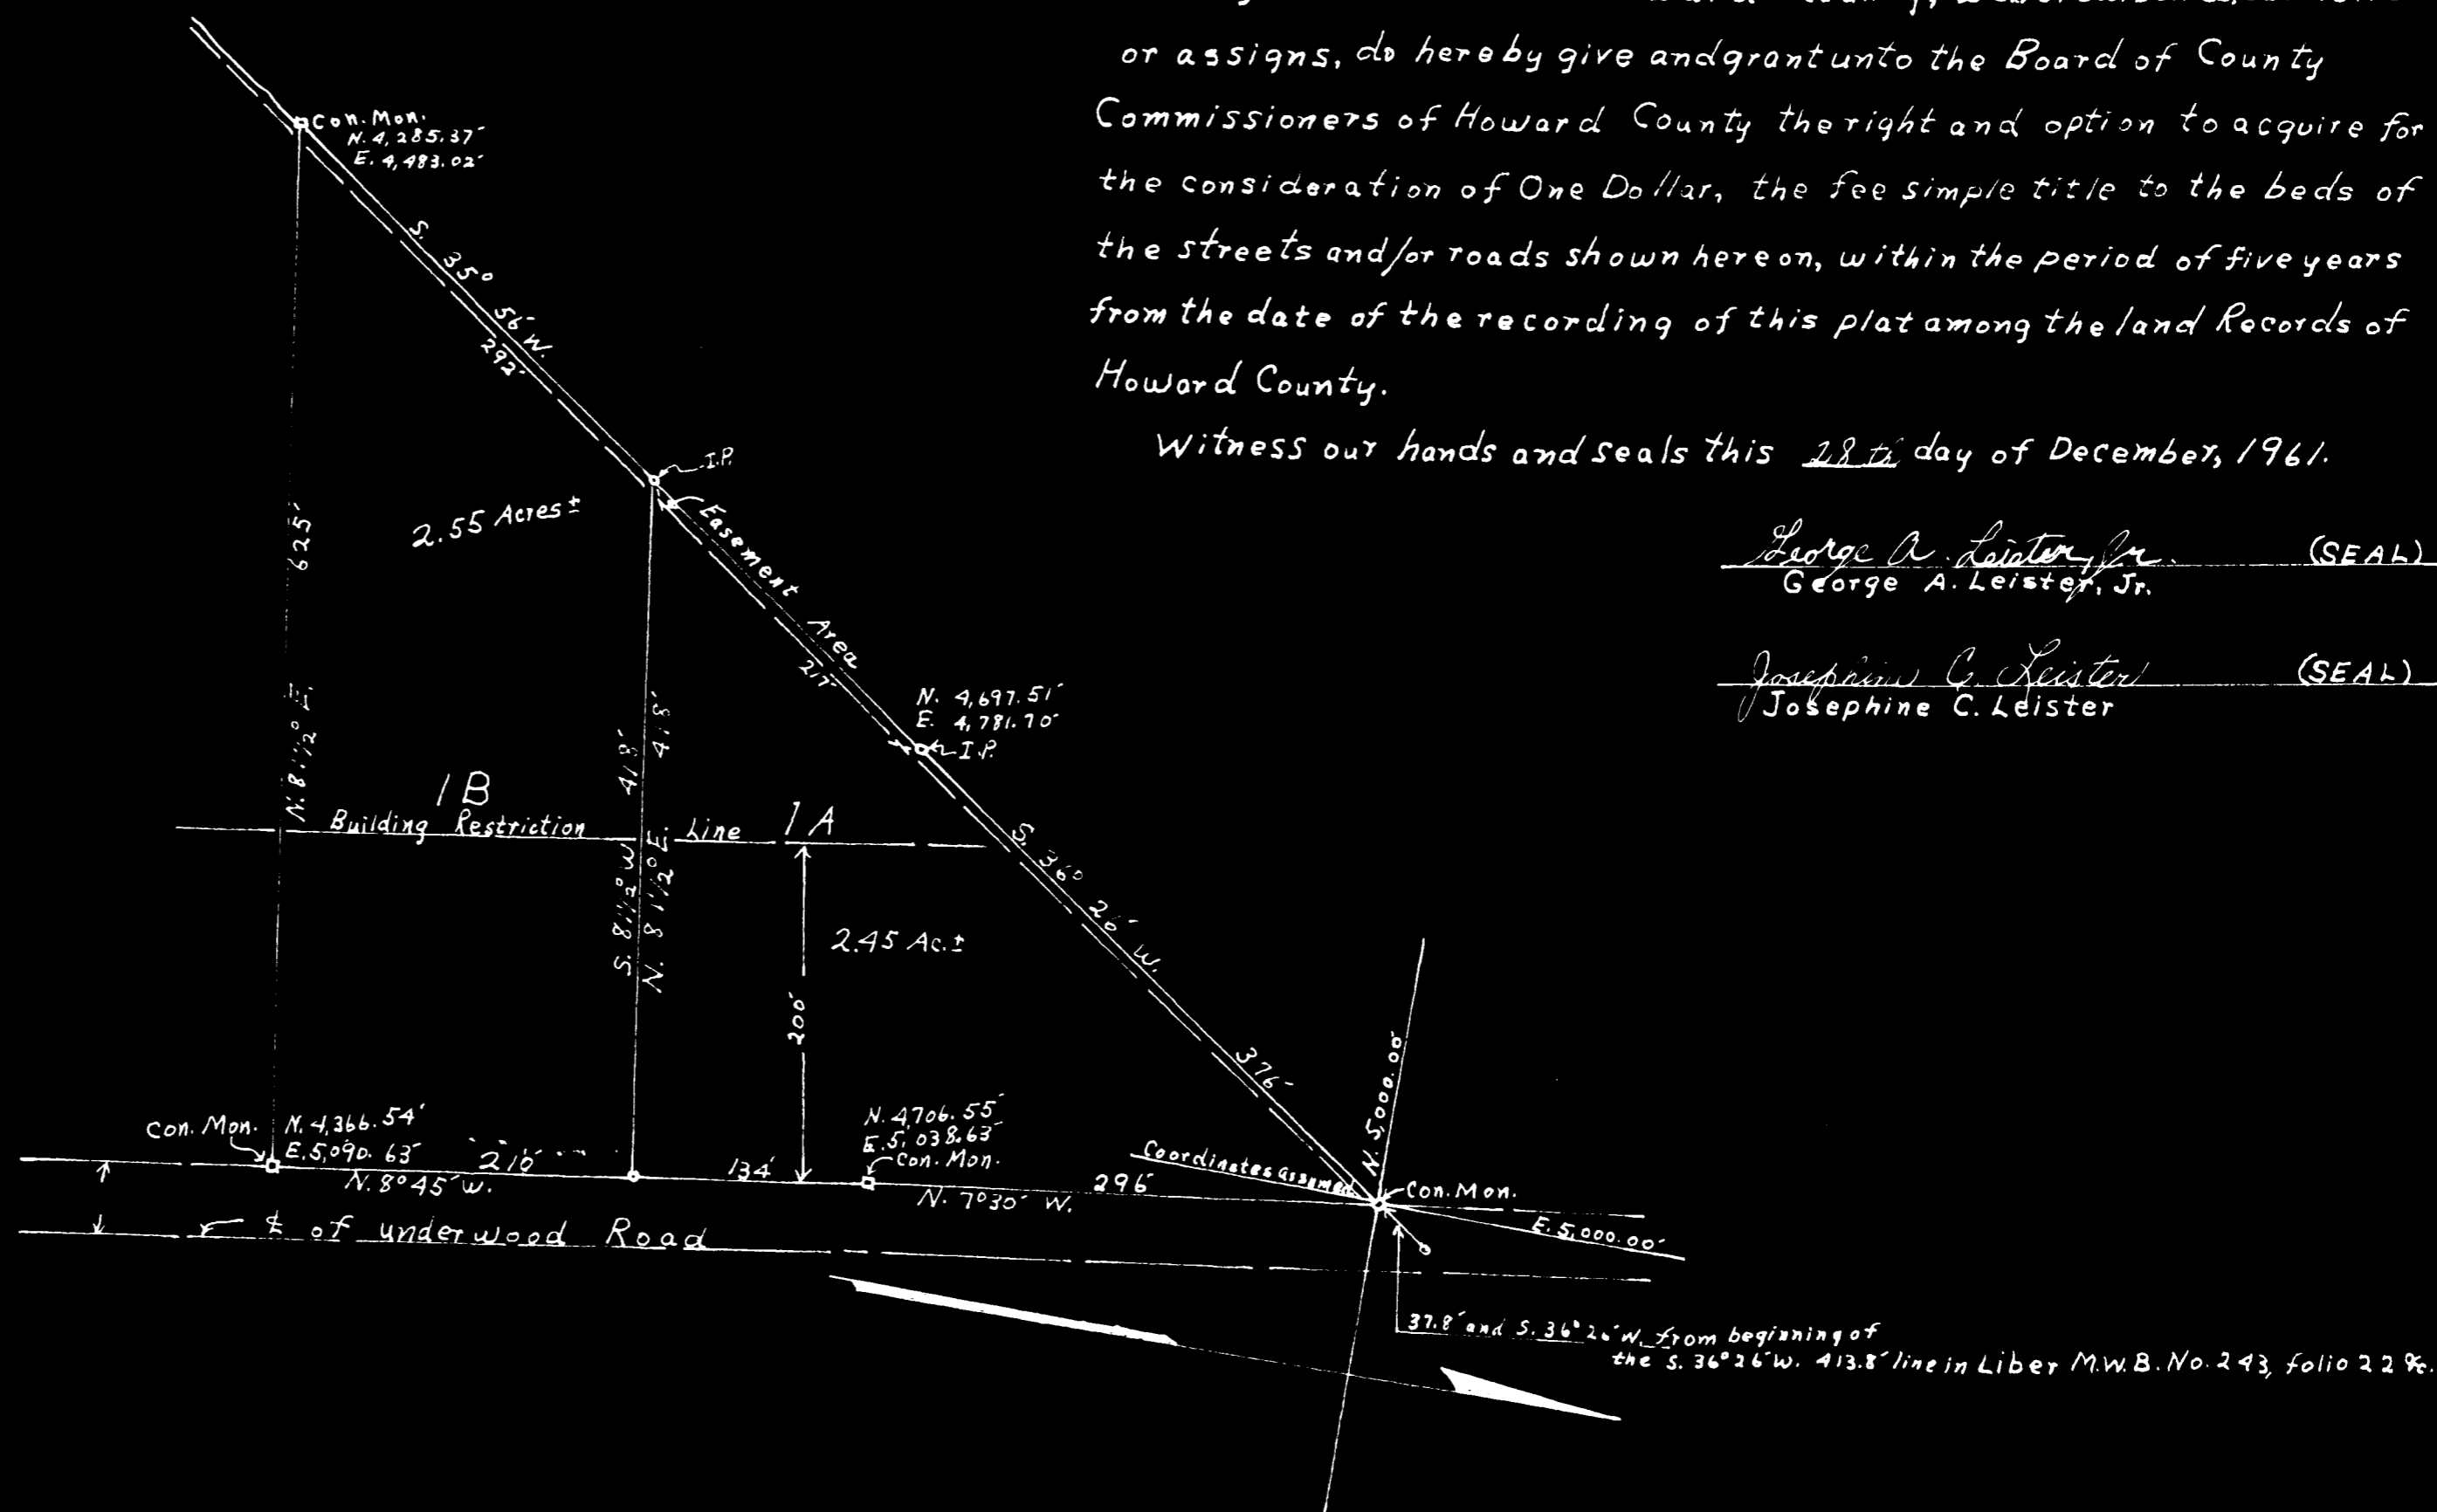 or assigns, do hereby give and grant unto the Board of County
Commissioners of Howard County the right and option to acquire for
the consideration of One Dollar, the fee simple title to the beds of
the streets and/or roads shown hereon, within the period of five years
from the date of the recording of this plat among the land Records of
Howard County.
Witness our hands and seals this 28th day of December, 1961.
George A. Leister, Jr. (SEAL)
George A. Leister, Jr.
Josephine C. Leister (SEAL)
Josephine C. Leister
Con. Mon.
N. 4,285.37'
E. 4,483.02'
S. 35° 56' W.
292'
I.P.
Easement Area
217'
N. 4,697.51'
E. 4,781.70'
I.P.
2.55 Acres ±
625'
N. 81 1/2° E.
418'
418'
S. 81 1/2° W
N. 81 1/2° E.
1B
1A
Building Restriction Line
200'
2.45 Ac. ±
S. 36° 26' W.
376'
N. 5,000.00'
Con. Mon.
N. 4,366.54'
E. 5,090.63'
210'
N. 8° 45' W.
134'
N. 4,706.55'
E. 5,038.63'
Con. Mon.
N. 7° 30' W.
296'
Coordinates assumed
Con. Mon.
E. 5,000.00'
℄ of underwood Road
37.8' and S. 36° 26' W. from beginning of
the S. 36° 26' W. 413.8' line in Liber M.W.B. No. 243, folio 22 &c.